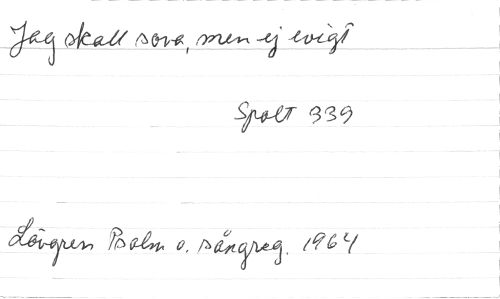 Jag skall sova, men ej evigt
Spalt 339
Lövgren Psalm o. sångreg. 1964